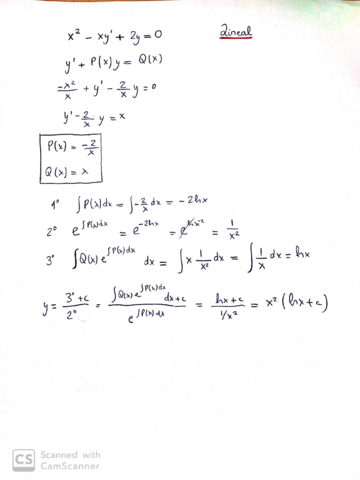 x² - xy' + 2y = 0 Lineal
y' + P(x) y = Q(x)
-x²/x + y' - 2/x y = 0
y' - 2/x y = x
P(x) = -2/x
Q(x) = x
1º ∫P(x)dx = ∫-2/x dx = -2lnx
2º e^∫P(x)dx = e^-2lnx = e^lnx^-2 = 1/x²
3º ∫Q(x) e^∫P(x)dx dx = ∫x 1/x² dx = ∫1/x dx = lnx
y = 3º+c/2º = ∫Q(x)e^∫P(x)dx dx+c / e^∫P(x)dx = lnx+c / 1/x² = x² (lnx+c)
CS Scanned with
CamScanner